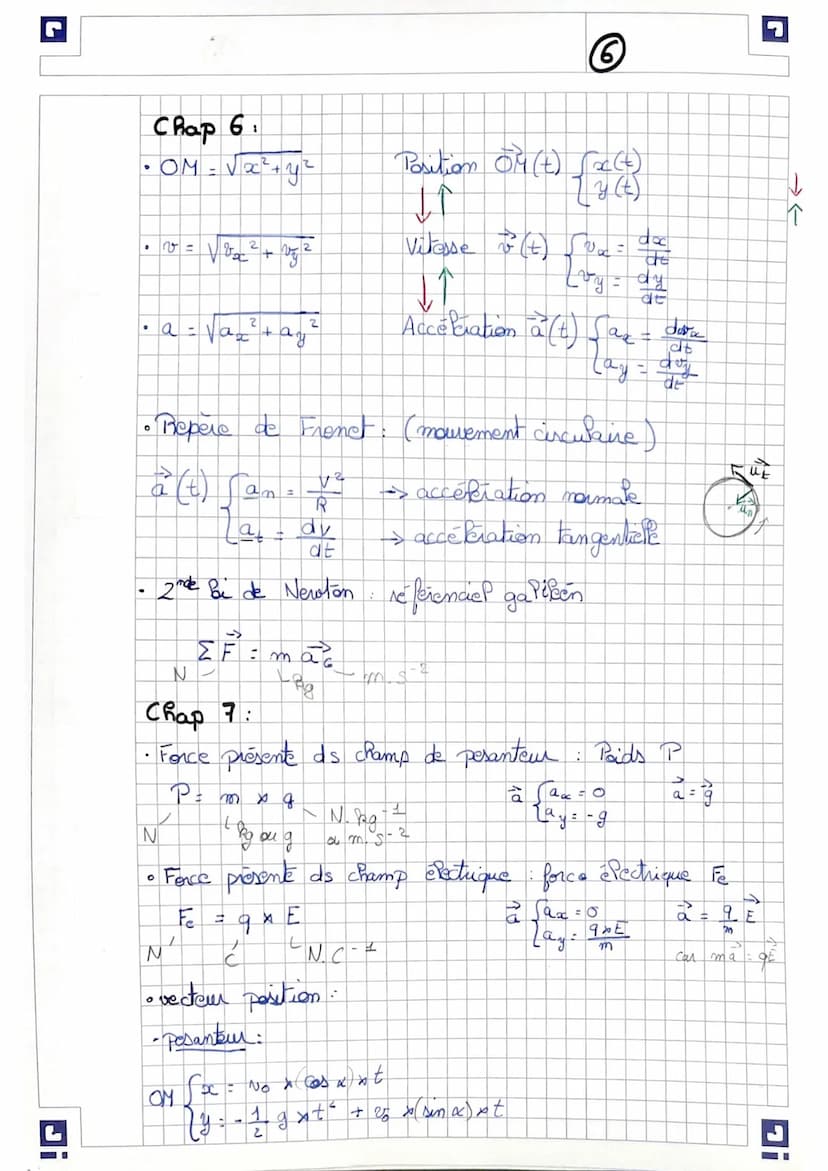 6
Chap 6 :
• OM = √(x² + y²) Position OM⃗(t) { x(t)
y(t)
↓↑
• v = √(vx² + vy²) Vitesse v⃗(t) { vx = dx/dt
vy = dy/dt
↓↑
• a = √(ax² + ay²) Accélération a⃗(t) { ax = dvx/dt
ay = dvy/dt
• Repère de Frenet : (mouvement circulaire)
u⃗t
u⃗n
a⃗(t) { an = V²/R → accélération normale
at = dv/dt → accélération tangentielle
• 2nde loi de Newton : référentiel galiléen
Σ F⃗ = m a⃗G
N kg m.s⁻²
Chap 7 :
• Force présente ds champ de pesanteur : Poids P
P = m × g a⃗ { ax = 0 a⃗ = g⃗
ay = -g
N kg ou g N.kg⁻¹
ou m.s⁻²
• Force présente ds champ électrique : force électrique Fe
Fe = q × E a⃗ { ax = 0 a⃗ = q/m E⃗
ay = q×E/m
N C N.C⁻¹ car ma⃗ = qE⃗
• vecteur position :
- pesanteur :
OM { x = v0 × (cos α) × t
y = -1/2 g × t² + v0 × (sin α) × t